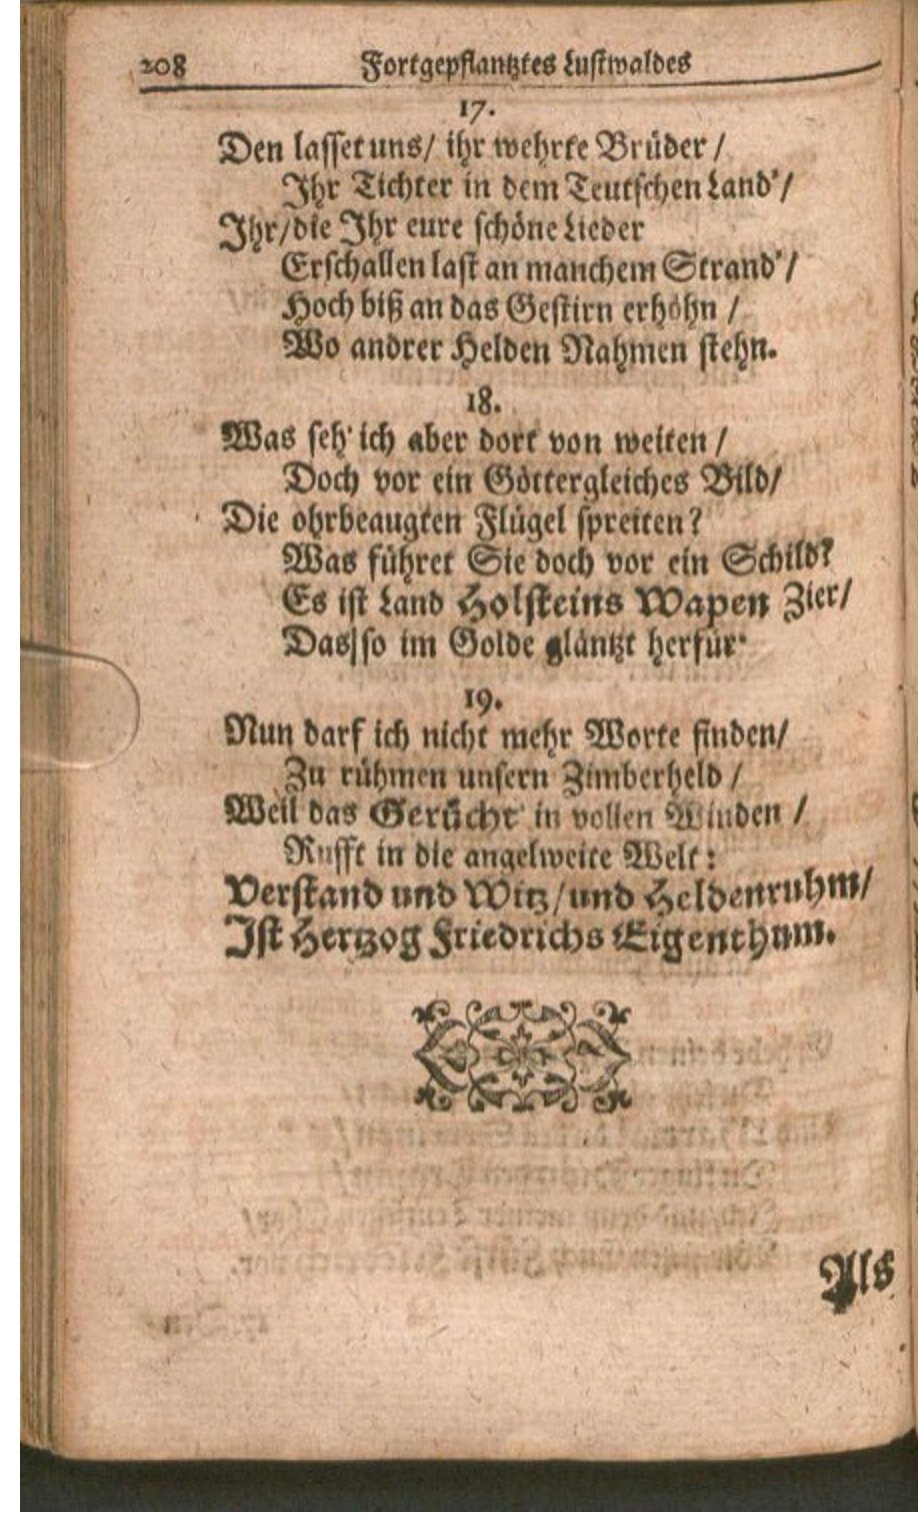 208 Fortgepflantztes Lustwaldes
17.
Den lasset uns/ ihr wehrte Brüder /
Ihr Tichter in dem Teutschen Land'/
Ihr/die Ihr eure schöne Lieder
Erschallen last an manchem Strand'/
Hoch biß an das Gestirn erhöhn /
Wo andrer Helden Nahmen stehn.
18.
Was seh' ich aber dort von weiten /
Doch vor ein Göttergleiches Bild/
Die ohrbeaugten Flügel spreiten?
Was führet Sie doch vor ein Schild?
Es ist Land Holsteins Wapen Zier/
Das/so im Golde gläntzt herfür.
19.
Nun darf ich nicht mehr Worte finden/
Zu rühmen unsern Zimberheld /
Weil das Gerücht' in vollen Winden /
Rufft in die angelweite Welt:
Verstand und Witz/und Heldenruhm/
Ist Hertzog Friedrichs Eigenthum.
Als